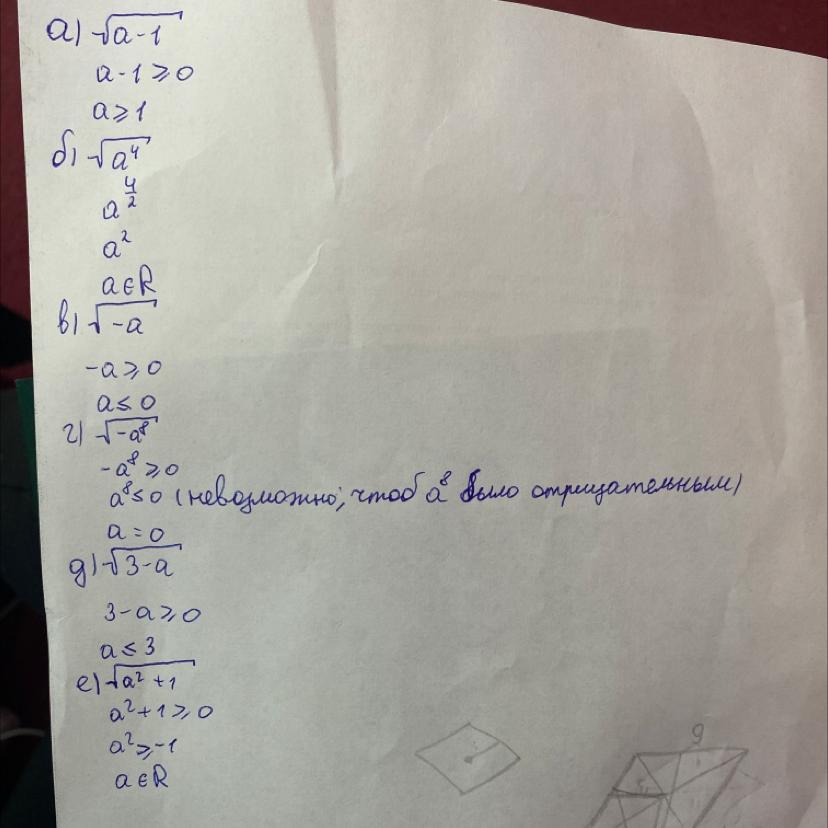 а) √a-1
a-1 ≥ 0
a ≥ 1
б) √a⁴
a^(4/2)
a²
a ∈ R
в) √-a
-a ≥ 0
a ≤ 0
г) √-a⁸
-a⁸ ≥ 0
a⁸ ≤ 0 (невозможно, чтоб a⁸ было отрицательным)
a = 0
д) √3-a
3-a ≥ 0
a ≤ 3
е) √a²+1
a²+1 ≥ 0
a² ≥ -1
a ∈ R